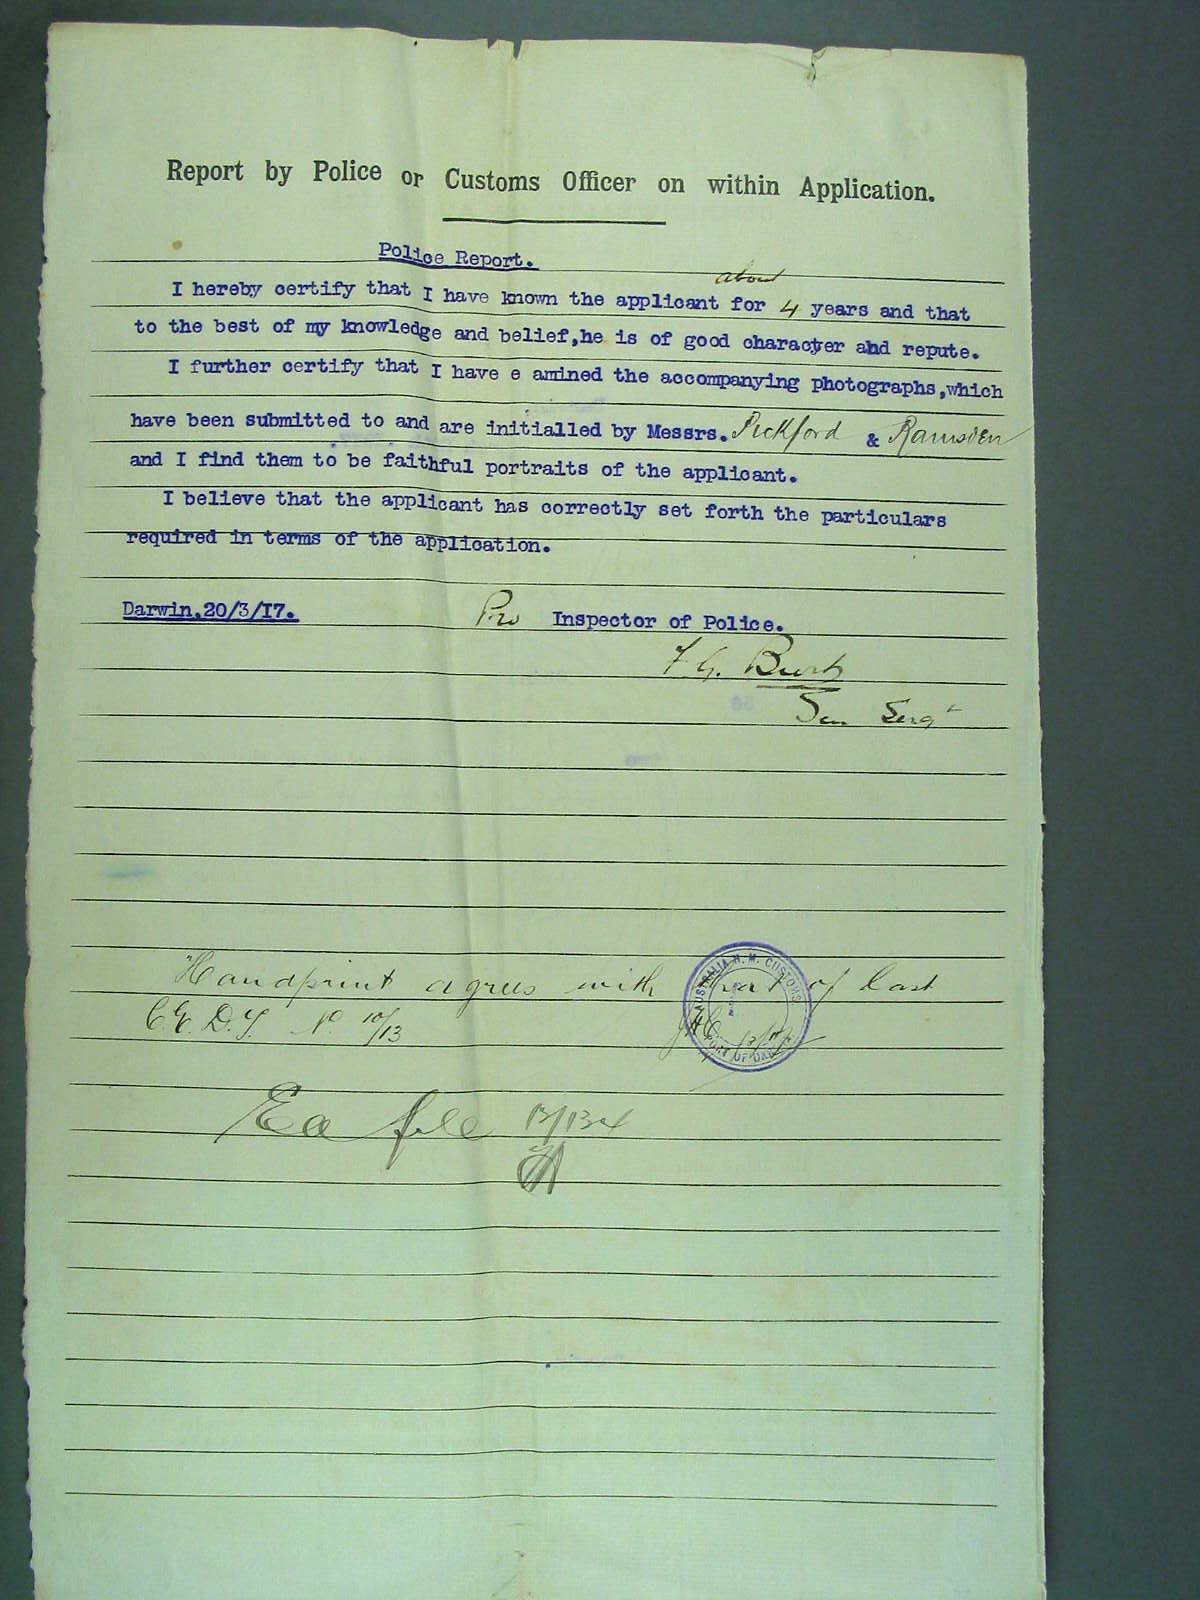 Report by Police or Customs Officer on within Application.
Police Report.
about
I hereby certify that I have known the applicant for 4 years and that
to the best of my knowledge and belief,he is of good character and repute.
I further certify that I have e amined the accompanying photographs,which
have been submitted to and are initialled by Messrs. Pickford & Ramsden
and I find them to be faithful portraits of the applicant.
I believe that the applicant has correctly set forth the particulars
required in terms of the application.
Darwin,20/3/17. Pro Inspector of Police.
F. G. Burt
Sen Sergt
Handprint agrees with that of last
C.E.D.T. No 10/13
AUSTRALIA H.M. CUSTOMS
PORT OF DARWIN
file